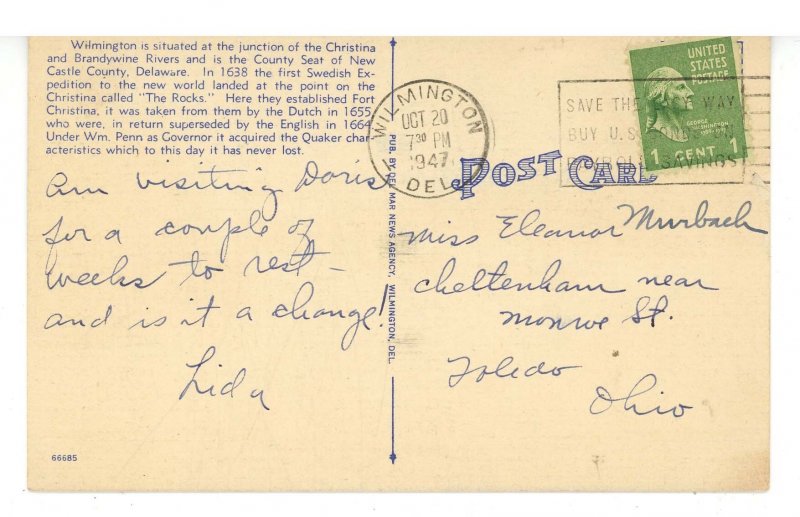 Wilmington is situated at the junction of the Christina
and Brandywine Rivers and is the County Seat of New
Castle County, Delaware. In 1638 the first Swedish Ex-
pedition to the new world landed at the point on the
Christina called "The Rocks." Here they established Fort
Christina, it was taken from them by the Dutch in 1655,
who were, in return superseded by the English in 1664.
Under Wm. Penn as Governor it acquired the Quaker char-
acteristics which to this day it has never lost.
Am visiting Doris
for a couple of
weeks to rest —
and is it a change!
Lida
66685
PUB. BY DEL MAR NEWS AGENCY, WILMINGTON, DEL.
WILMINGTON
OCT 20
7 30 PM
1947
DEL.
SAVE THE WAY
BUY U.S.
PAYROLL SAVINGS
UNITED
STATES
POSTAGE
GEORGE
WASHINGTON
1 CENT 1
POST CARD
Miss Eleanor Murbach
Cheltenham near
Monroe St.
Toledo
Ohio